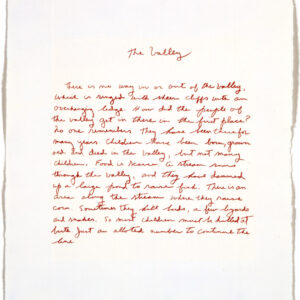 The Valley
There is no way in or out of the valley,
which is ringed with sheer cliffs with an
overhanging ledge. How did the people of
the valley get in there in the first place?
No one remembers. They have been there for
many years. Children have been born, grown
old and died in the valley, but not many
children. Food is scarce. A stream runs
through the valley, and they have dammed
up a large pond to raise fish. There is an
area along the stream where they raise
corn. Sometimes they kill birds, a few lizards
and snakes. So most children must be killed at
birth. Just an allotted number to continue the
line